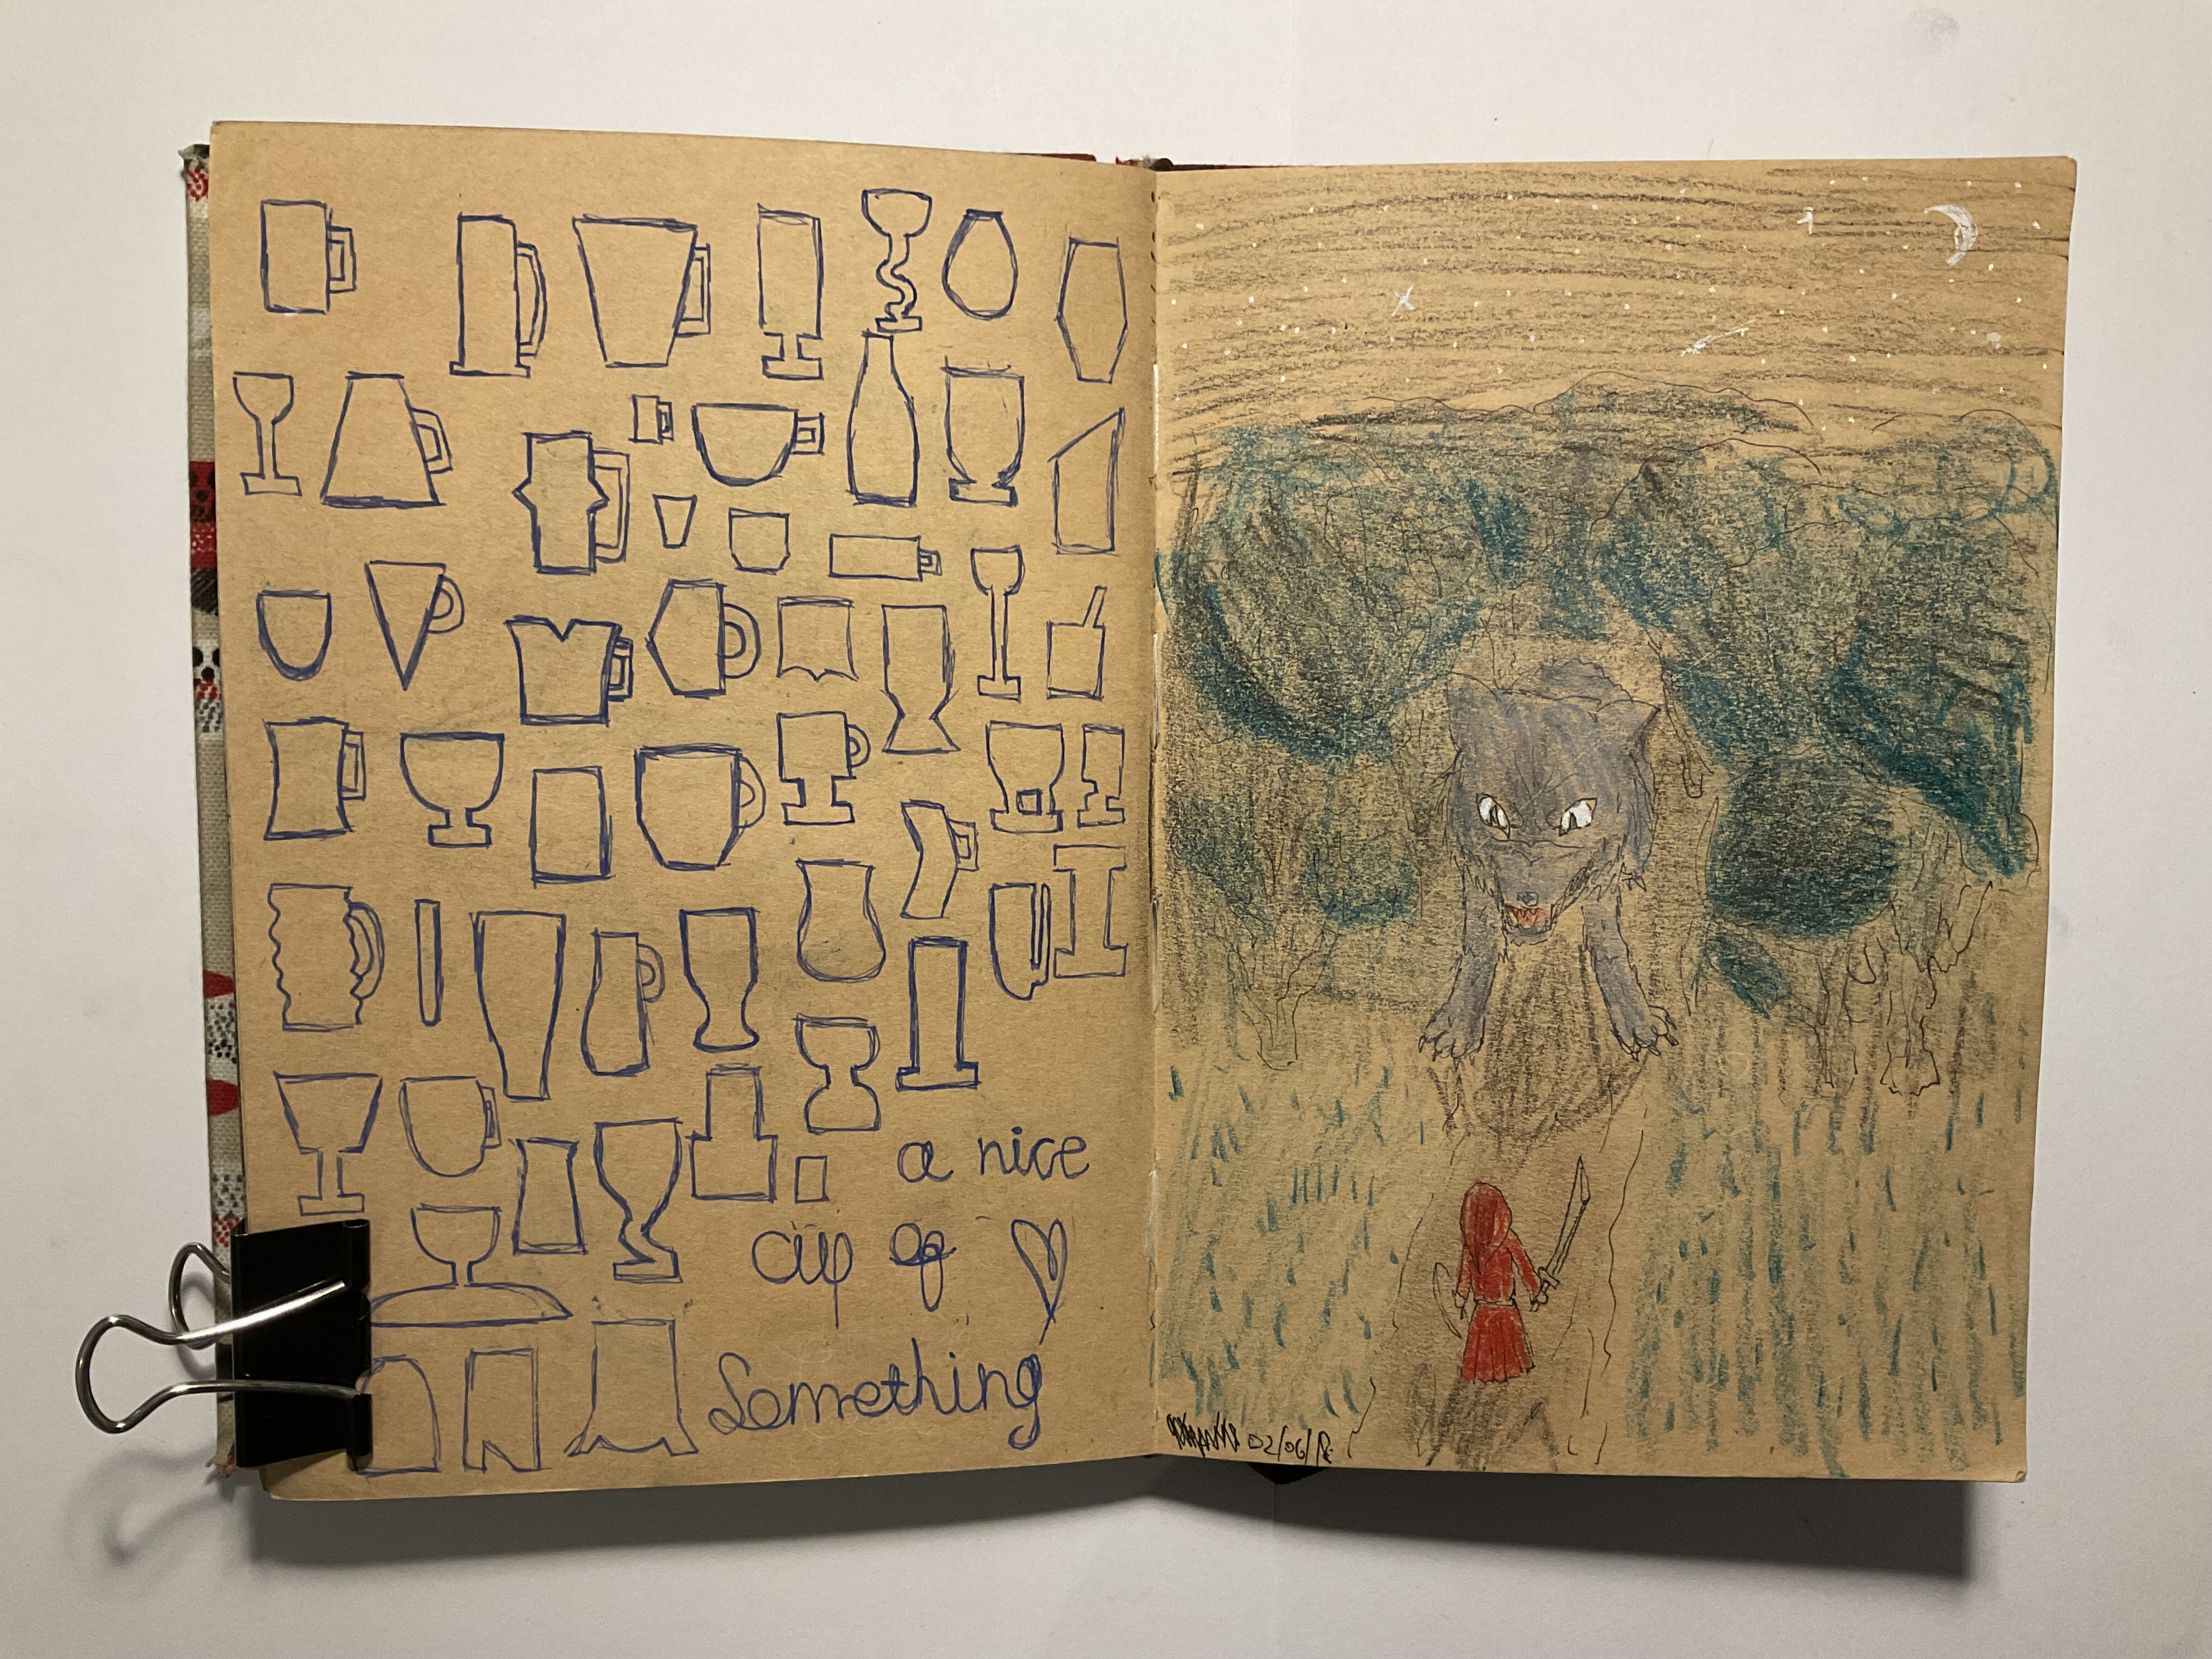 a nice
cup of
Something
02/06/18